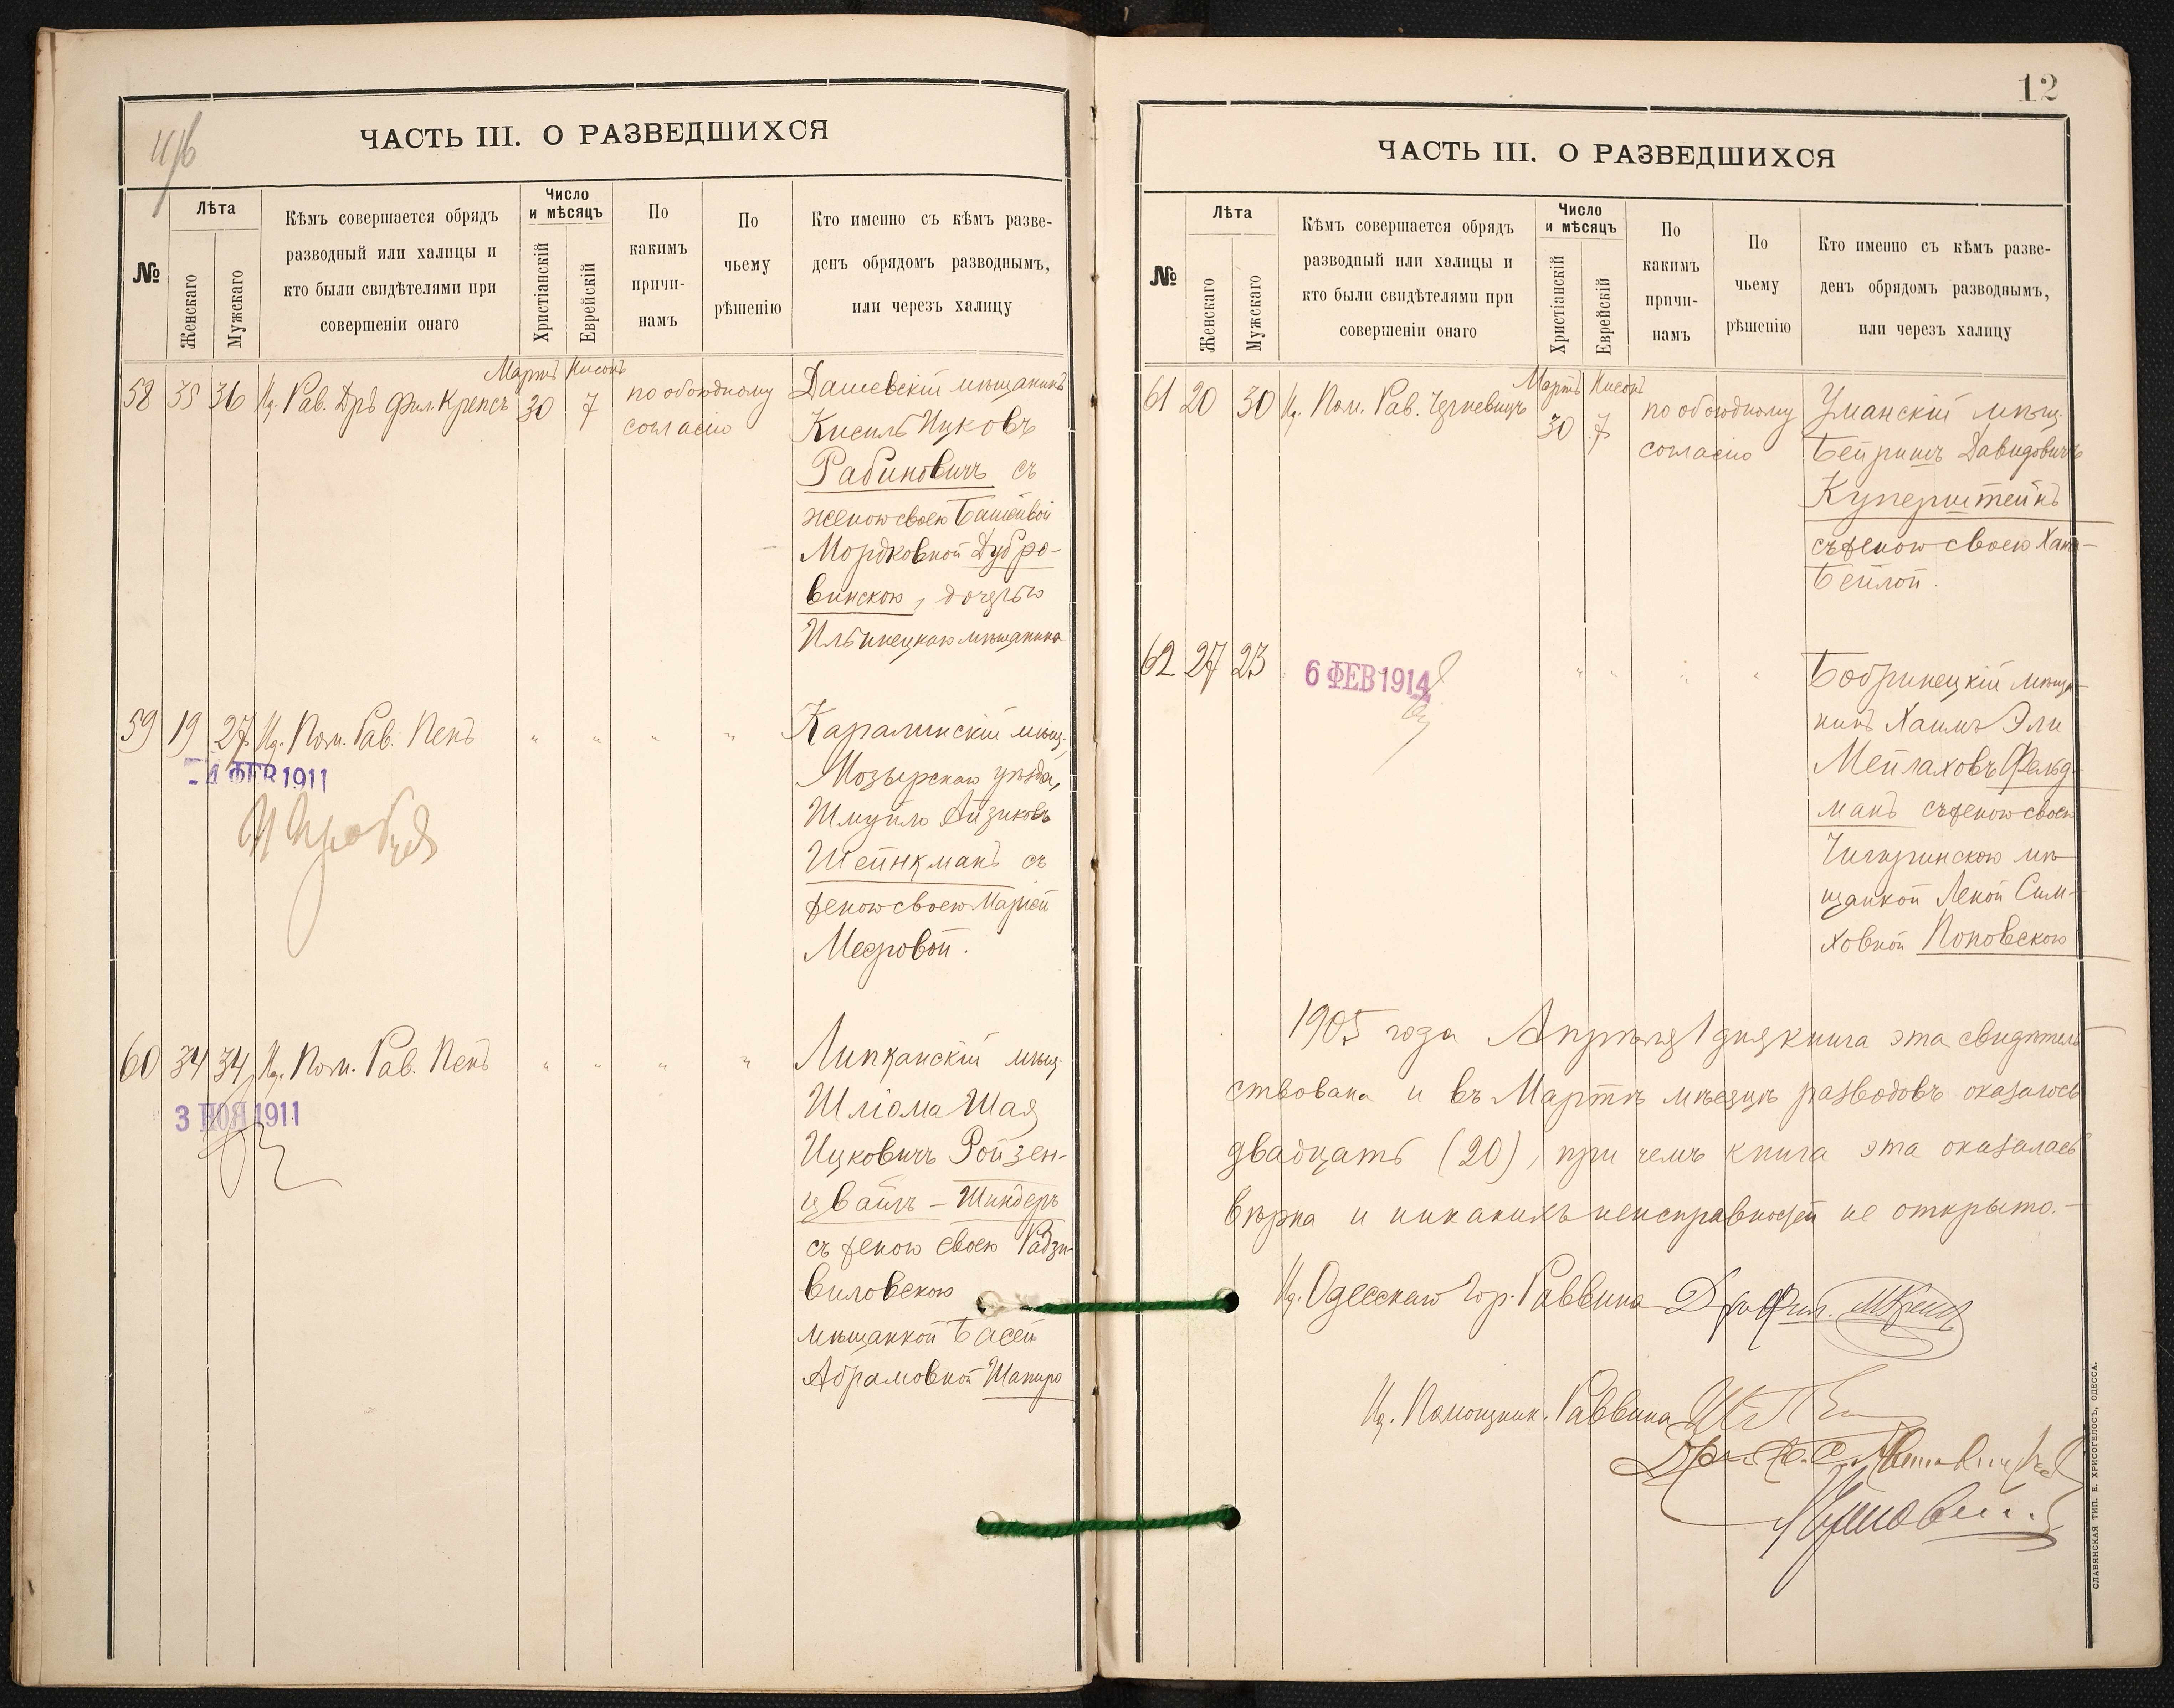 ЧАСТЬ III. О РАЗВЕДШИХСЯ
№
Лѣта
Женскаго
Мужскаго
Кѣмъ совершается обрядъ
разводный или халицы и
кто были свидѣтелями при
совершеніи онаго
Число
и мѣсяцъ
Христіанскій
Еврейскій
По
какимъ
причи-
намъ
По
чьему
рѣшенію
Кто именно съ кѣмъ разве-
денъ обрядомъ разводнымъ,
или черезъ халицу
Мартъ Нисонъ
58 35 36 Ид. Рав. Дръ Фил. Крепсъ 30 7 по обоюдному
согласію
Дашевскій мѣщанинъ
Кисиль Ицковъ
Рабиновичъ съ
женою своею Башейвой
Мордковной Дубро-
винскою, дочерью
Ильинецкаго мѣщанина
59 19 27 Ид. Пом. Рав. Пенъ " " " "
- 4 ФЕВ 1911
Каралинскій мѣщ.
Мозырскаго уѣзда,
Шмуйло Айзиковъ
Шейнкманъ съ
женою своею Маріей
Мееровой.
60 34 34 Ид. Пом. Рав. Пенъ " " " "
3 НОЯ 1911
Липканскій мѣщ.
Шліома Шая
Ицковичъ Ройзен-
цвайгъ - Шиндеръ
съ женою своею Радзи-
виловскою
мѣщанкой Басей
Абрамовной Шапиро
12
ЧАСТЬ III. О РАЗВЕДШИХСЯ
№
Лѣта
Женскаго
Мужскаго
Кѣмъ совершается обрядъ
разводный или халицы и
кто были свидѣтелями при
совершеніи онаго
Число
и мѣсяцъ
Христіанскій
Еврейскій
По
какимъ
причи-
намъ
По
чьему
рѣшенію
Кто именно съ кѣмъ разве-
денъ обрядомъ разводнымъ,
или черезъ халицу
Мартъ Нисонъ
61 20 30 Ид. Пом. Рав. Черневичъ 30 7 по обоюдному
согласію
Уманскій мѣщ.
Бейришъ Давидовичъ
Куперштейнъ
съ женою своею Хана-
Бейлой.
62 27 23 " " " "
6 ФЕВ 1914
Бобринецкій мѣща-
нинъ Хаимъ Эли
Мейлаховъ Фельд-
манъ съ женою своею
Чигиринскою мѣ-
щанкой Леной Сим-
ховной Поповскою
1905 года Апрѣля 1 дня книга эта свидѣтель
ствована и въ Мартѣ мѣсяцѣ разводовъ оказалось
двадцать (20), при чемъ книга эта оказалась
вѣрна и никакихъ неисправностей не открыто.-
Ид. Одесскаго Гор. Раввина Дръ Фил. МКрепсъ
Ид. Помощник. Раввина
СЛАВЯНСКАЯ ТИП. Е. ХРИСОГЕЛОСЪ, ОДЕССА.